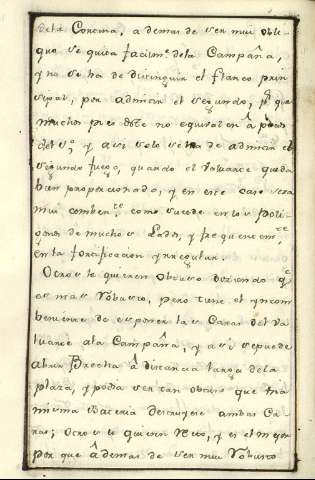 dela Cortina, ademas de ser mui obli-
quo se quita facilmte. dela Campaña,
y no se ha de distinguir el flanco prin
cipal, por admitir el segundo, pr. que
muchos pies deste no equivalen â pocos
del po. y asi solo se ha de admitir el
segundo fuego, quando el Valuarte queda
bien proporcionado, y en este caso sera
mui combente. como sucede en los poli-
gonos de muchos Lados, y frequentemte.
en la fortificacion yrregular.
Otros le quieren Obtuso diziendo qe.
es mas Robusto, pero tiene el yncom
beniente de exponer las Caras del Va
luarte ala Campaña, y asi se puede
abrir Brecha â distancia larga dela
plaza, y podia ser tan obtuso que una
misma Bateria destruyese ambas Ca
ras; Otros le quieren Recto, y es el mejor
por que âdemas de ser mui Robusto